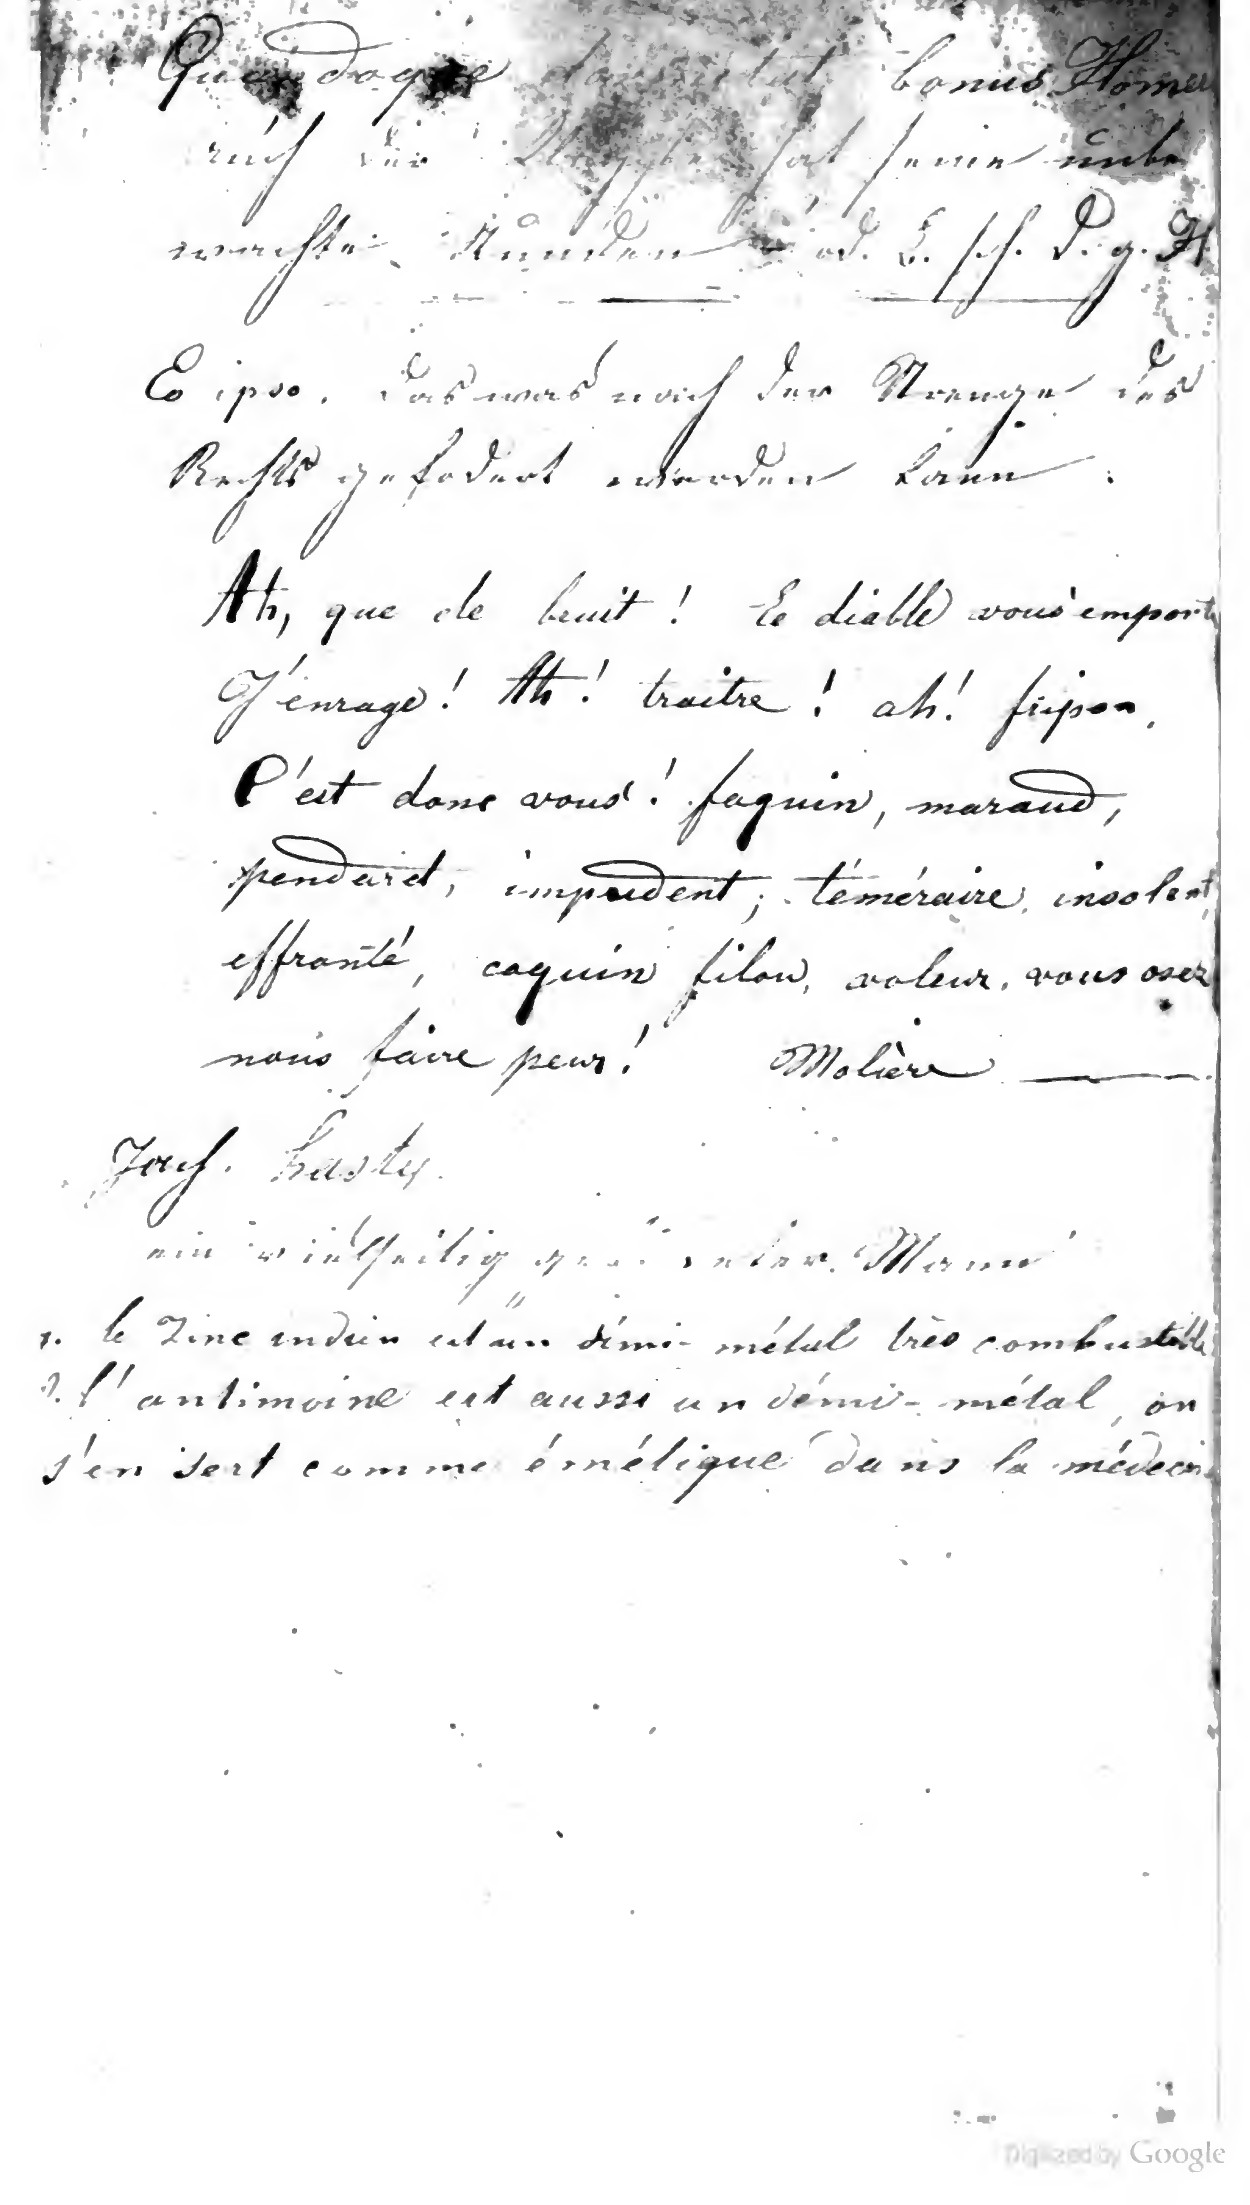 Quandoque dormitat bonus Homer
auch der hat seine unbe
wachte Stunden od. E. sch. d. g. H
Eo ipso. das was nach der Strenge des
Rechts gefodert werden kann.
Ah, que de bruit! Le diable vous emport
J'enrage! Ah! traitre! ah! fripon,
C'est donc vous! faquin, maraud,
pendard, impudent, téméraire, insolent
effronté, coquin filou, voleur, vous osez
nous faire peur! Molière
Jach.
ein vielseitig Mann
1. le Zinc indien est un démi-métal très combustible
2. l'antimoine est aussi un démi-métal, on
s'en sert comme émétique dans la médecin
Digitized by Google